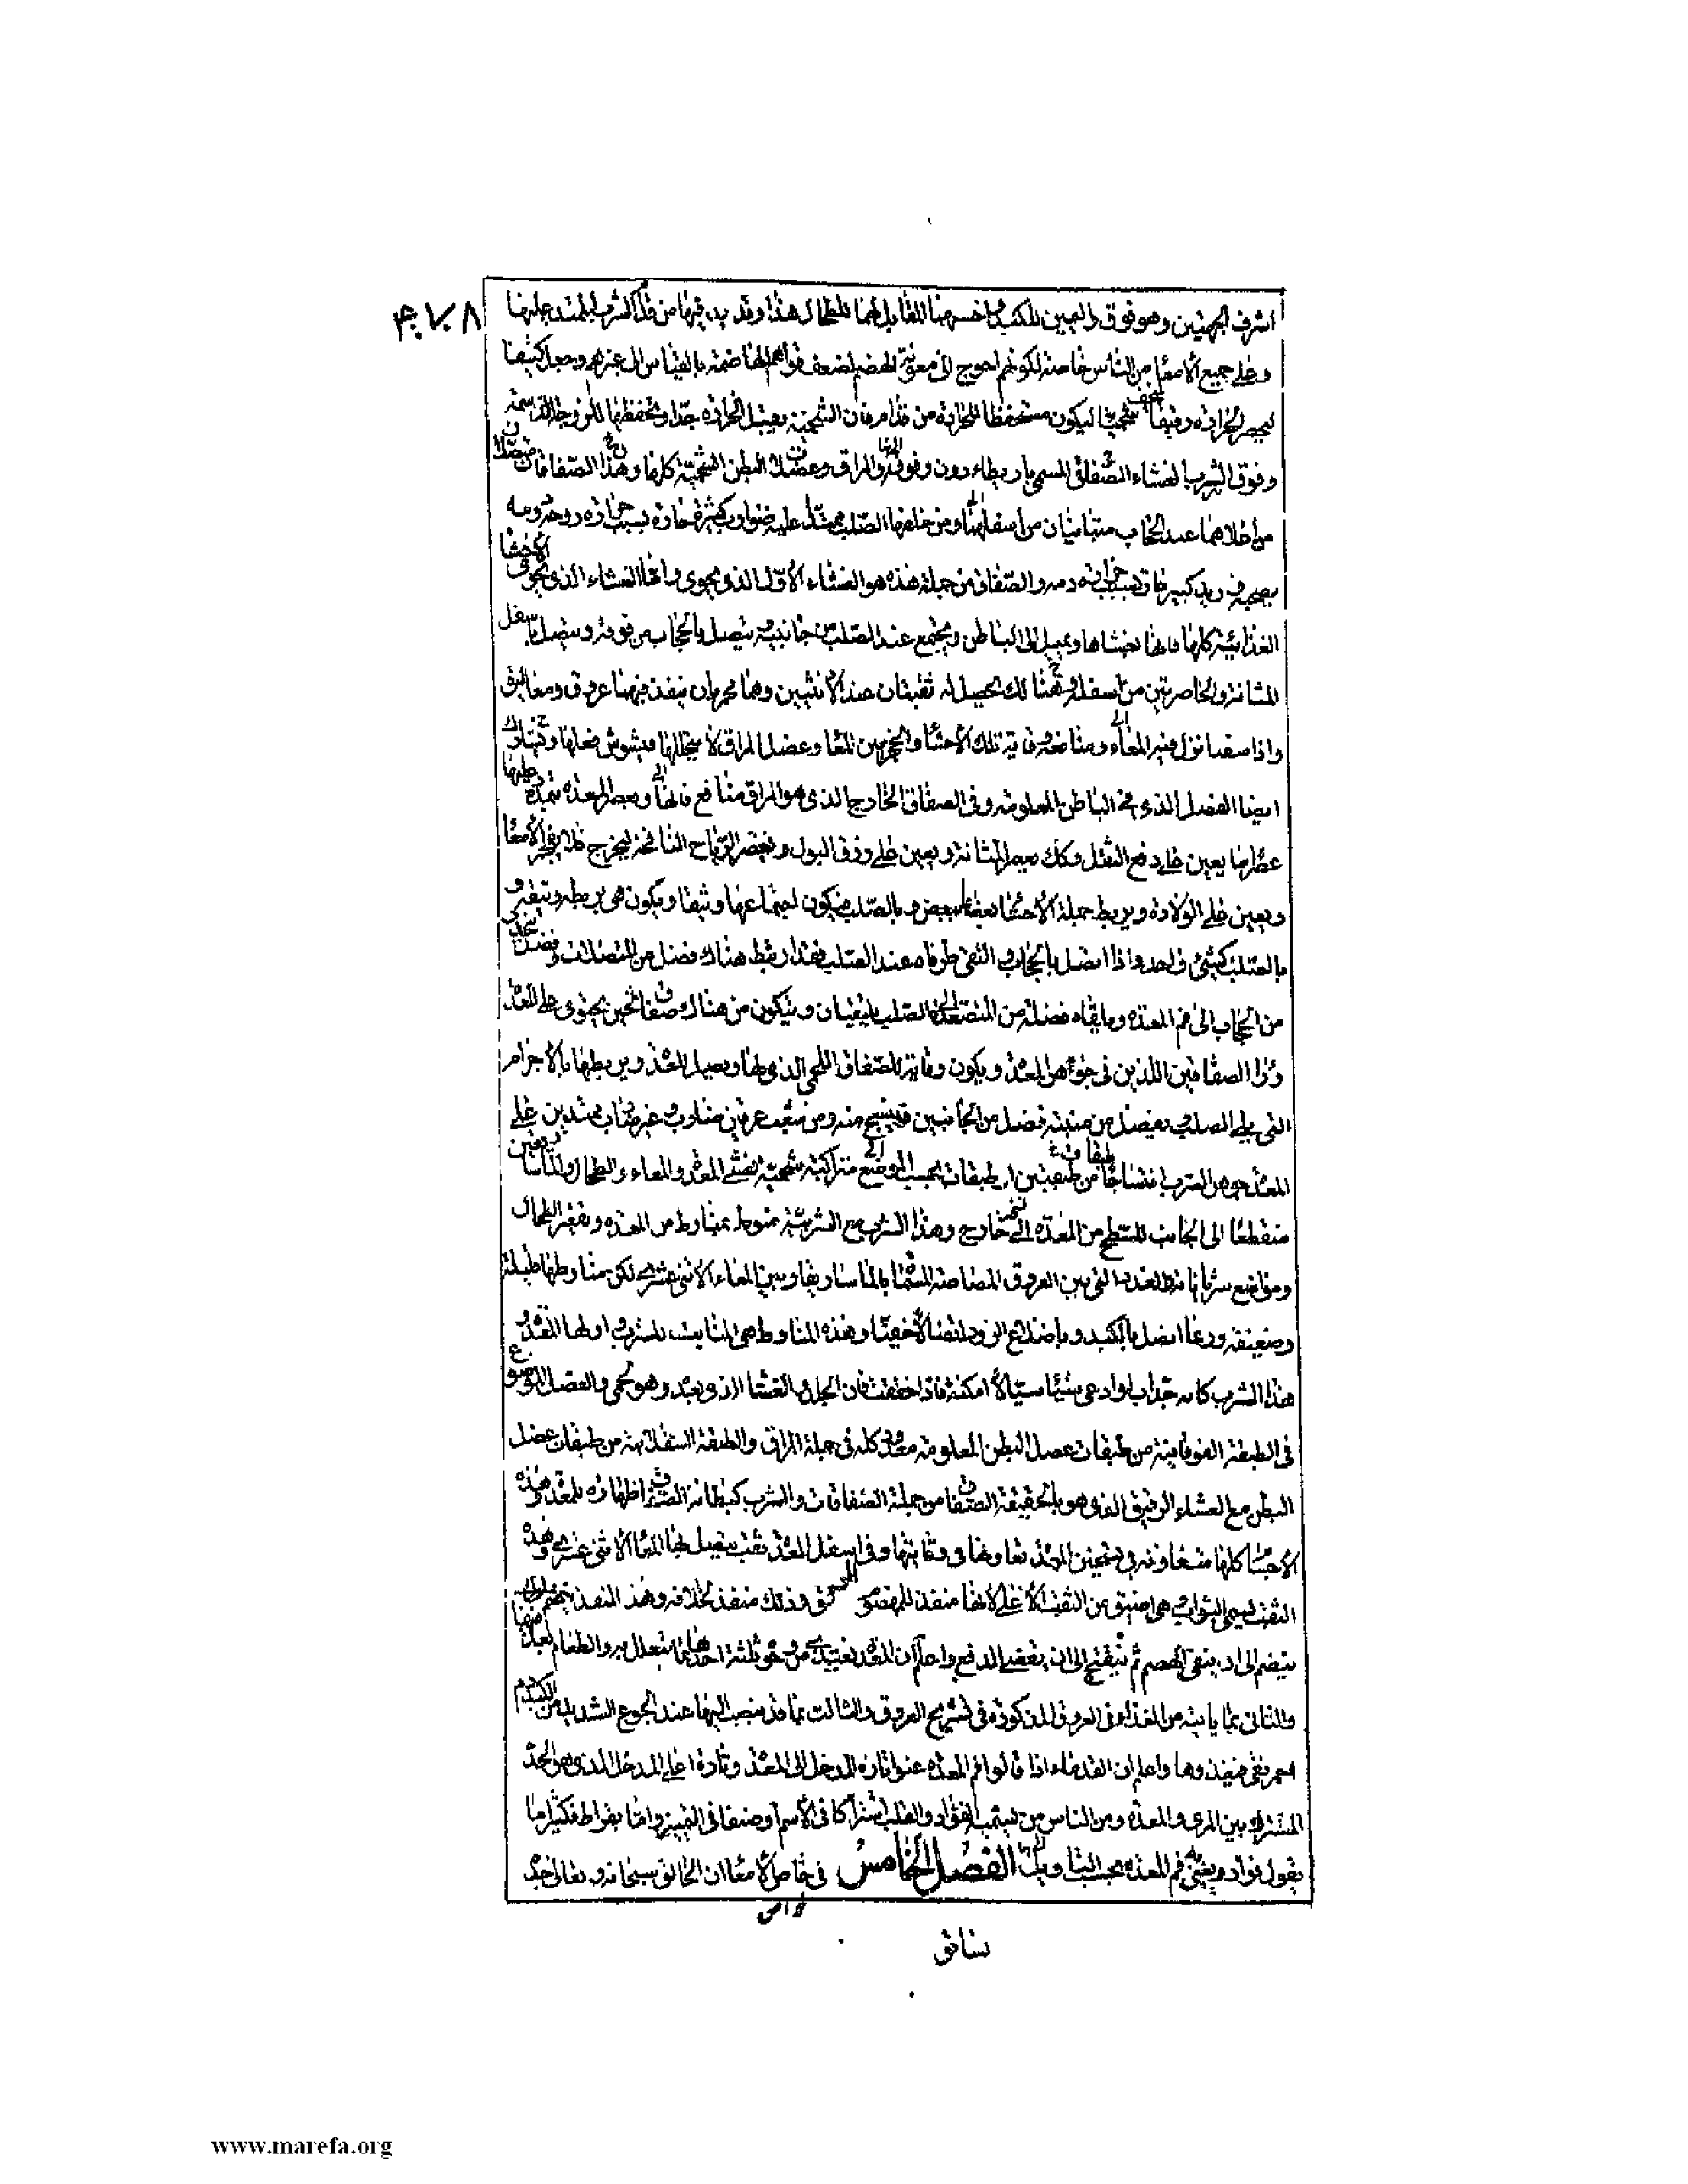 اشرف الجهتين وهو فوق واليمين للكبد واخسهما المقابل لهما للطحال هذا وقد يدفيها من قدام الثرب الممتد عليها
وعلى جميع الامعاء من الناس خاصة لكونهم احوج الى معونة الهضم لضعف قواهم الهاضمة بالقياس الى غيرهم وجعل كثيفا
ليحصر الحرارة رقيقا ليخف شحميا ليكون مستحفظا للحرارة من قدام فان الشحمية يقبل الحرارة جدا وتحفظها للزوجة الدسمة
وفوق الثرب الغشاء الصفاقى المسمى باريطاءرون وفوقه المراق وعضلات البطن الشحمية كلها وهذان الصفاقان متصلان
من اعلاهما عند الحجاب متباينان من اسفلهما ومن خلفها الصلب ممتدا عليه عرق ضوارب كثير حار بسبب حرارة روحه ودمه
يصحبه وريد كبير حار بسبب حرارة دمه والصفاق من جملة هذه هو الغشاء الاول الذى يحوى الاحشاء
الغذائية كلها فانها يغشاها ويميل الى الباطن ويجتمع عند الصلب من جانبيه ويتصل بالحجاب من فوقه ويتصل باسفل
المثانة والخاصرتين من اسفل وهنالك يحصل له ثقبان عند الانثيين وهما مجريان ينفذ فيهما عروق ومعاليق
واذا اتسعا نزل فيه المعاء ومنافعه وقاية تلك الاحشاء والحجز بين المعا وعضل المراق لا يتخللها فيشوش فعلها ويشارك
ايضا العضل الذى فى الباطن المعلومة وفى الصفاق الخارج الذى هو المراق منافع فانها
يعين على دفع الثفل وكذلك يعصر المثانة ويعين على زرق البول ويعصر الرياح النافخة ليخرج
ويعين على الولادة ويربط جملة الاحشاء بعضها ببعض وبالصلب فيكون اجتماعها وثيقا ويكون هى بربطه
بالصلب كشئ واحد واذا اتصل بالحجاب والتقى طرفاه عند الصلب فقد ارتبط هناك
من الحجاب الى فم المعدة ويلقاه فضلة من المتصعد الى الصلب يلتقيان ويتكون من هناك صفاق ثخين يحتوى على المعدة
وراء الصفاقين اللذين فى جوهر المعدة ويكون وقاية للصفاق اللحمى الذى لها ويصل المعدة ويربطها بالاجرام
التى يلى الصلب ويفضل من منبته فضل من الجانبين فينتسج منه ومن شعب عرقين ضارب وغير ضارب ممتدين على
المعدة جوهر الثرب انتساجا من طبقتين او طبقات بحسب الموضع متراكبة شحمية يغشى المعدة والمعاء والطحال والماساريقا
منعطفا الى الجانب المسطح من المعدة الى خارج وهذا الثرب مع الثربية منوط بمناوط من المعدة وتقعير الطحال
ومواضع شرياناته والغدد التى بين العروق المصاصة المسماة بالماساريقا وبين المعاء الاثنى عشرى لكن مناوطها قليلة
وضعيفة وربما اتصل بالكبد وباضلاع الزور اتصالا خفيا وهذه المناوط هى المنابت للثرب واولها المعدة و
هذا الثرب كانه جراب لو اوعى شيئا سيالا امسكه فاذا حققت فان الجلد والغشاء الذى بعده وهو لحمى والعضل الموضوع
فى الطبقة الفوقانية من طبقات عضل البطن المعلومة معدود كله فى جملة المراق والطبقة السفلانية من طبقات عضل
البطن مع الغشاء الرقيق الذى هو بالحقيقة الصفاق من جملة الصفاقات والثرب كبطانة الصفاق وظهارة للمعدة وهذه
الاحشاء كلها متعاونة فى تسخين المعدة تعاونها فى وقايتها وفى اسفل المعدة ثقب يتصل بها المعا الاثنى عشرى وهذه
الثقب يسمى البواب وهى اضيق من الثقب الاعلى لانها منفذ للمهضوم المرقق وذلك منفذ لخلافه وهذا المنفذ
ينضم الى ان ينقضى الهضم ثم ينفتح الى ان ينقضى الدفع واعلم ان المعدة يغتذى من وجوه ثلثة احدها بما يتعلل به والطعام يعد فيها
والثانى بما ياتيه من الغذاء فى العروق المذكورة فى تشريح العروق والثالث بما قد ينصب اليها عند الجوع الشديد من الكبد دم
احمر نقى فيغذوها واعلم ان القدماء اذا قالوا فم المعدة عنوا تارة المدخل الى المعدة وتارة اعلى المدخل الذى هو الحد
المشترك بين المرى والمعدة ومن الناس من يسميه الفؤاد والقلب اشتراكا فى الاسم او ضعفا فى التمييز واما بقراط فكثيرا ما
يقول فؤاد ويعنى به فم المعدة بحسب التاويلات الفصل الخامس فى خاص الامعاء ان الخالق سبحانه وتعالى
سابق
www.marefa.org